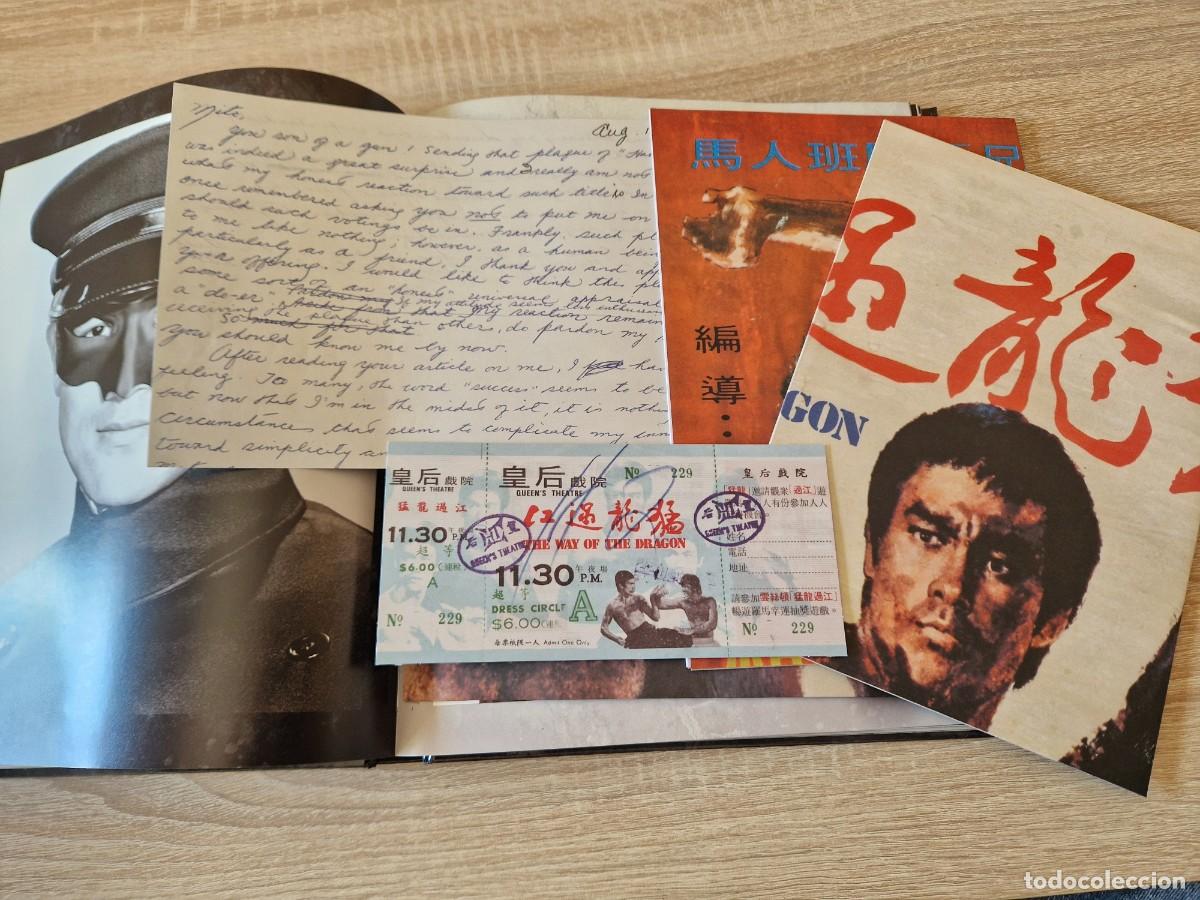 Mito,
Aug. 1
You son of a gun! Sending that plaque of "Ha
was indeed a great surprise and really am not
what's my honest reaction toward such title. In
once remembered asking you not to put me on
should such votings be in. Frankly, such pl
to me like nothing; however, as a human bein
particularly as a friend, I thank you and app
your offering. I would like to think the pl
some sort of an "honest" universal appraisal
a "do-er". my attitude seems less enthusias
receiving the plaque than others, do pardon my
So much for that my reaction remain
you should know me by now.
After reading your article on me, I ha
feeling. To many, the word "success" seems to be
but now that I'm in the midst of it, it is noth
circumstances that seems to complicate my inn
toward simplicity a
馬人班
編導:
過龍
GON
皇后戲院
QUEEN'S THEATRE
猛龍過江
11.30 午夜場 P.M.
超等
$6.00
A
No 229
皇后戲院 No 229
QUEEN'S THEATRE
江過龍猛
THE WAY OF THE DRAGON
11.30 午夜場 P.M.
超等
DRESS CIRCLE A
$6.00
每票祇限一人 Admit One Only
QUEEN'S THEATRE
QUEEN'S THEATRE
皇后戲院
「猛龍」邀請觀衆「過江」遊
人有份參加人人
姓名
電話
地址
請參加雲赫頓「猛龍過江」
暢遊羅馬幸運抽獎遊戲。
No 229
todocoleccion